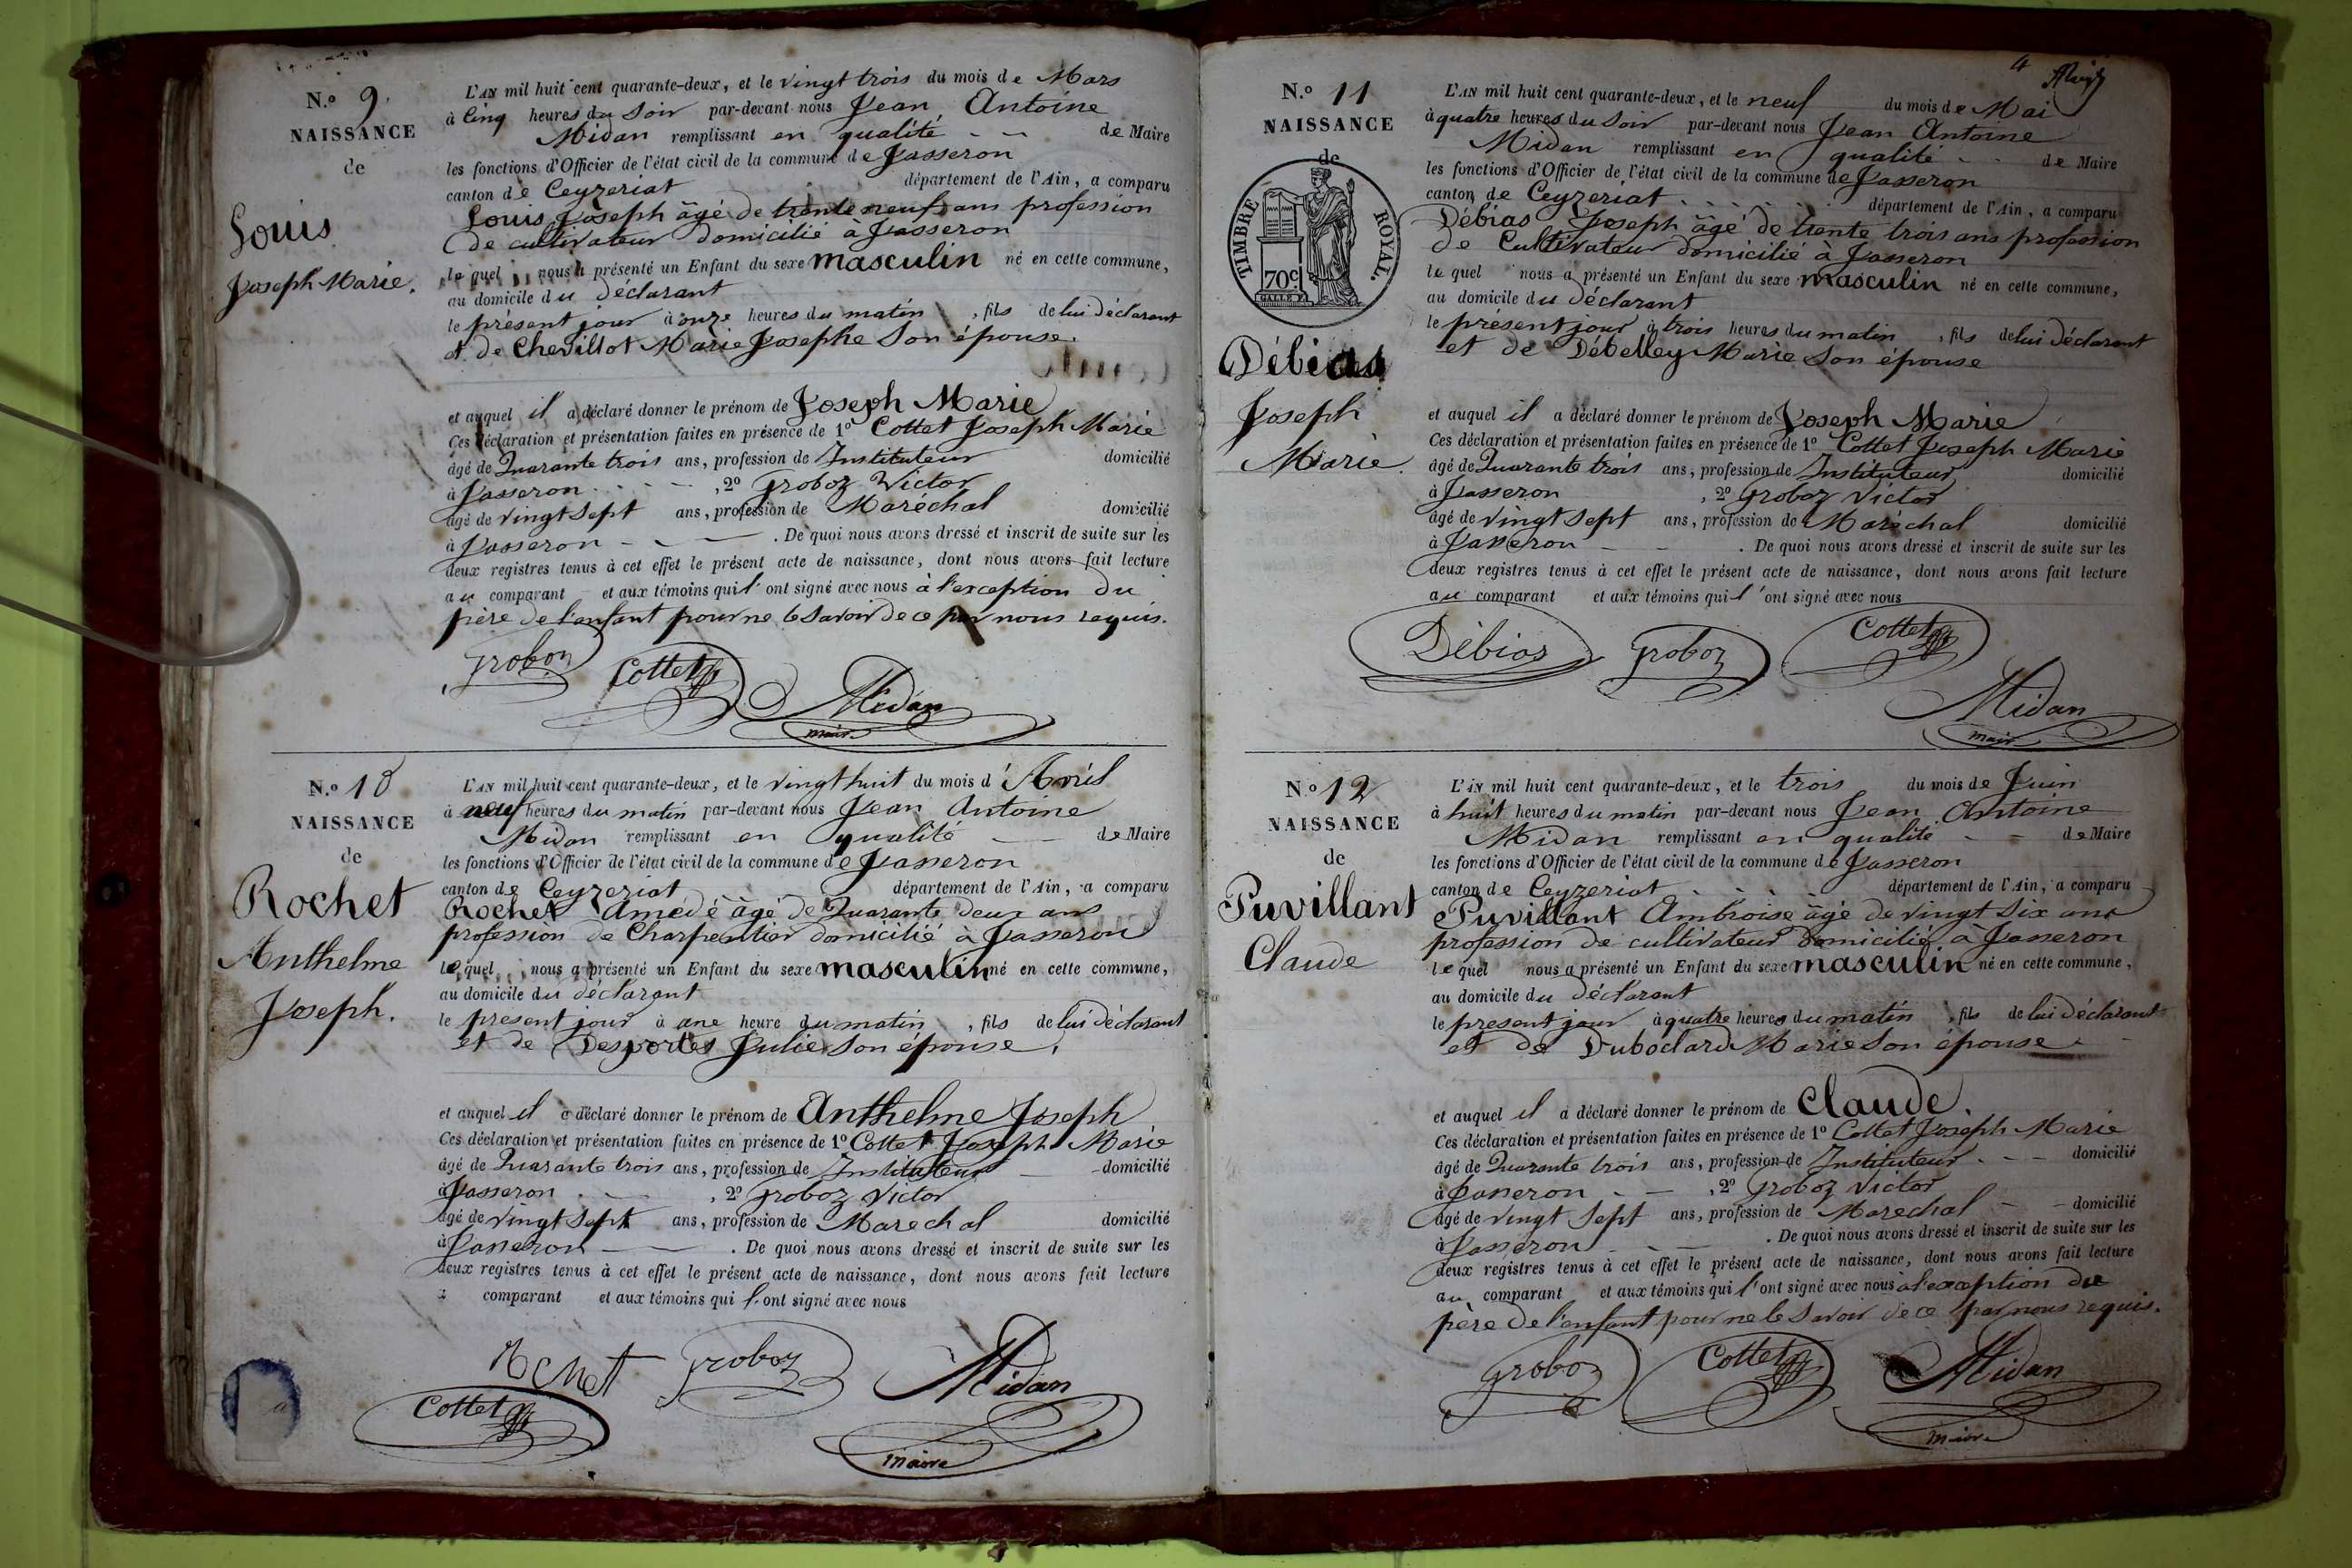 N.o 9.
NAISSANCE
de
Louis
Joseph Marie.
L'AN mil huit cent quarante-deux, et le vingt trois du mois de Mars
à Cinq heures du Soir par-devant nous Jean Antoine
Midan remplissant en qualité de Maire
les fonctions d'Officier de l'état civil de la commune de Jasseron
canton de Ceyzeriat département de l'Ain, a comparu
Louis Joseph âgé de trente neuf ans profession
de cultivateur domicilié à Jasseron
lequel nous a présenté un Enfant du sexe masculin né en cette commune,
au domicile du déclarant
le présent jour à onze heures du matin, fils de lui déclarant
et de Chevillot Marie Josephe Son épouse.
et auquel il a déclaré donner le prénom de Joseph Marie
Ces déclaration et présentation faites en présence de 1o Cottet Joseph Marie
âgé de Quarante trois ans, profession de Instituteur domicilié
à Jasseron, 2o Groboz Victor
âgé de vingt Sept ans, profession de Maréchal domicilié
à Jasseron. De quoi nous avons dressé et inscrit de suite sur les
deux registres tenus à cet effet le présent acte de naissance, dont nous avons fait lecture
au comparant et aux témoins qui l'ont signé avec nous à l'exception du
père de l'enfant pour ne le savoir de ce par nous requis.
Groboz Cottet Midan
maire
N.o 10
NAISSANCE
de
Rochet
Anthelme
Joseph.
L'AN mil huit cent quarante-deux, et le vingt huit du mois d'Avril
à neuf heures du matin par-devant nous Jean Antoine
Midan remplissant en qualité de Maire
les fonctions d'Officier de l'état civil de la commune de Jasseron
canton de Ceyzeriat département de l'Ain, a comparu
Rochet Amédé âgé de Quarante deux ans
profession de Charpentier domicilié à Jasseron
lequel nous a présenté un Enfant du sexe masculin né en cette commune,
au domicile du déclarant
le présent jour à une heure du matin, fils de lui déclarant
et de Desportes Julie Son épouse.
et auquel il a déclaré donner le prénom de Anthelme Joseph
Ces déclaration et présentation faites en présence de 1o Cottet Joseph Marie
âgé de Quarante trois ans, profession de Instituteur domicilié
à Jasseron, 2o Groboz Victor
âgé de vingt Sept ans, profession de Marechal domicilié
à Jasseron. De quoi nous avons dressé et inscrit de suite sur les
deux registres tenus à cet effet le présent acte de naissance, dont nous avons fait lecture
comparant et aux témoins qui l'ont signé avec nous
Rochet Groboz Midan
Cottet
maire
4
N.o 11
NAISSANCE
de
TIMBRE ROYAL.
70c
Débias
Joseph
Marie.
L'AN mil huit cent quarante-deux, et le neuf du mois de Mai
à quatre heures du Soir par-devant nous Jean Antoine
Midan remplissant en qualité de Maire
les fonctions d'Officier de l'état civil de la commune de Jasseron
canton de Ceyzeriat département de l'Ain, a comparu
Débias Joseph âgé de trente trois ans profession
de Cultivateur domicilié à Jasseron
lequel nous a présenté un Enfant du sexe masculin né en cette commune,
au domicile du déclarant
le présent jour à trois heures du matin, fils de lui déclarant
et de Débelley Marie Son épouse
et auquel il a déclaré donner le prénom de Joseph Marie
Ces déclaration et présentation faites en présence de 1o Cottet Joseph Marie
âgé de Quarante trois ans, profession de Instituteur domicilié
à Jasseron, 2o Groboz Victor
âgé de vingt Sept ans, profession de Maréchal domicilié
à Jasseron. De quoi nous avons dressé et inscrit de suite sur les
deux registres tenus à cet effet le présent acte de naissance, dont nous avons fait lecture
au comparant et aux témoins qui l'ont signé avec nous
Débias Groboz Cottet
Midan
maire
N.o 12
NAISSANCE
de
Puvillant
Claude
L'AN mil huit cent quarante-deux, et le trois du mois de Juin
à huit heures du matin par-devant nous Jean Antoine
Midan remplissant en qualité de Maire
les fonctions d'Officier de l'état civil de la commune de Jasseron
canton de Ceyzeriat département de l'Ain, a comparu
Puvillant Ambroise âgé de vingt Six ans
profession de cultivateur domicilié à Jasseron
lequel nous a présenté un Enfant du sexe masculin né en cette commune,
au domicile du déclarant
le présent jour à quatre heures du matin, fils de lui déclarant
et de Duboclard Marie Son épouse
et auquel il a déclaré donner le prénom de Claude.
Ces déclaration et présentation faites en présence de 1o Cottet Joseph Marie
âgé de Quarante trois ans, profession de Instituteur domicilié
à Jasseron, 2o Groboz Victor
âgé de vingt Sept ans, profession de Marechal domicilié
à Jasseron. De quoi nous avons dressé et inscrit de suite sur les
deux registres tenus à cet effet le présent acte de naissance, dont nous avons fait lecture
au comparant et aux témoins qui l'ont signé avec nous à l'exception du
père de l'enfant pour ne le savoir de ce par nous requis.
Groboz Cottet Midan
maire